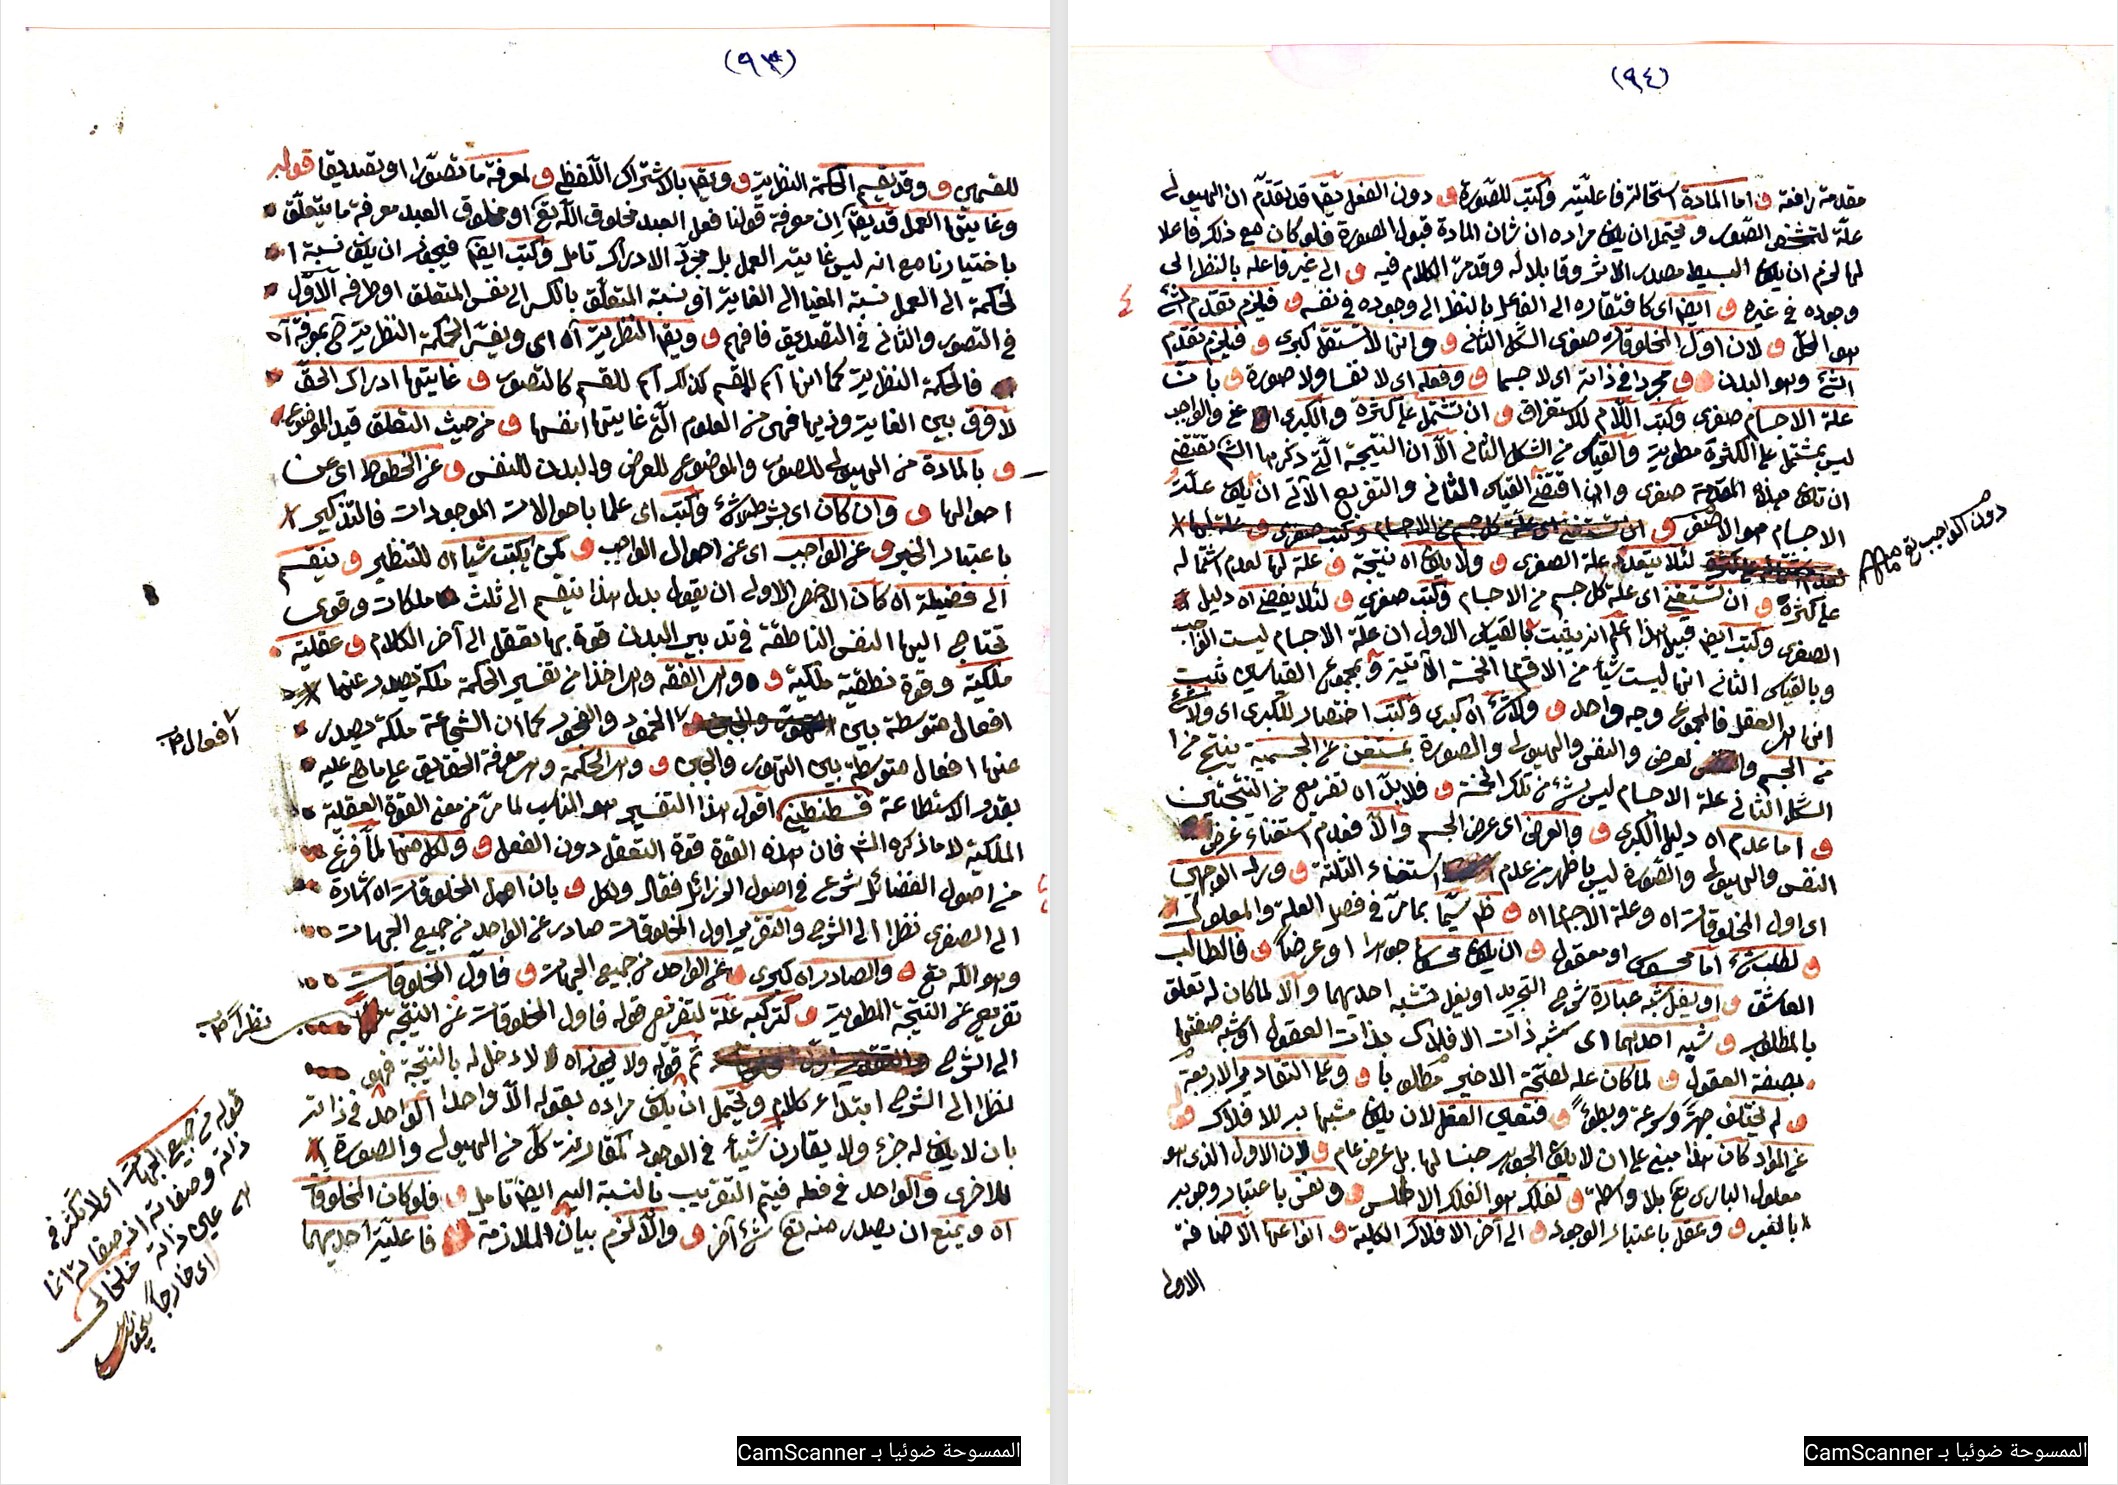 (٩٣)
للقسمين و وقد يقسم الحكمة النظرية و ويقم بالاشتراك اللفظي و لمعرفة ما تصورا او تصديقا قوله
وغايتها العمل قد يقم إن معرفة قولنا فعل العبد مخلوق الله تع او مخلوق العبد معرفة ما يتعلق
باختيارنا مع انه ليس غايته العمل بل مجرد الادراك تامل وكتب ايضا فيجوز ان يكون نسبة ا
لحكمة الى العمل نسبة المغيا الى الغاية او نسبة المتعلق بالكسر الى نفس المتعلق او طرفه الاول
في التصور والثاني في التصديق فافهم و ويقم النظرية آه اى ويفسر الحكمة النظرية بمعرفة آه
فالحكمة النظرية كما انها اسم للقسم كذلك اسم للقسم كالتصور و غايتها ادراك الحق
لا فرق بين الغاية وذيها فهى من العلوم التى غايتها انفسها و من حيث التعلق قيد الموضوع
و بالمادة من الهيولى للصور والموضوع للعرض والبدن للنفس و عن الخطوط اى عن
احوالها و وان كان اى بشرط لا شئ وكتب اى علما باحوالات الموجودات فالتذكير
باعتبار الخبر و عن الواجب اى عن احوال الواجب و لكن يكتب شيا آه للتنظير و ينقسم
الى فضيلة آه كان الاخصر الاولى ان يقول بدل هذا ينقسم الى ثلث ملكات وقوى
تحتاج اليها النفس الناطقة في تدبير البدن قوة بها تعقل الى آخر الكلام و عقلية
ملكية و قوة نطقية ملكية و وهى الفقه وهى اخذا من تفسير الحكمة ملكة تصدر عنها
افعال متوسطة بين الخمود والفجور كما ان الشجاعة ملكة تصدر
أفعال
عنها افعال متوسطة بين التهور والجبن و وهى الحكمة وهى معرفة الحقايق على ما هى عليه
بقدر الاستطاعة قسطنطينى اقول هذا التفسير هو المناسب لما مر من معنى القوة العقلية
الملكية لا ما ذكره الشم فان هذه القوة قوة التعقل دون الفعل و ولكل منها لما فرغ
من اصول الفضائل شرع في اصول الرزائل فقال ولكل و بان اهمل المخلوقات آه اشارة
الى الصغرى نظرا الى الشرح والتقرير اول المخلوقات صادر عن الواحد من جميع الجهات
وهو الله تع و والصادر آه كبرى و عن الواحد من جميع الجهات و فاول المخلوقات
تفريع عن النتيجة المطوية و كتركبه علة لتفريع قوله فاول المخلوقات عن النتيجة
نظرا
الى الشرح ثم قوله ولا يجوز آه لا دخل له بالنتيجة فهو
نظرا الى الشرح ابتداء كلام ويحتمل ان يكون مراده بقوله الا واحدا الواحد في ذاته
بان لا يكون له جزء ولا يقارن شيئا في الوجود كمقارنة كل من الهيولى والصورة
للاخرى والواحد في فعله فيتم التقريب بالنسبة اليه ايضا تامل و فلو كان المخلوق
آه ويمنع ان يصدر منه تع شئ آخر و والا لزم بيان الملازمة فاعلية احديهما
قوله من جميع الجهات اى لا تكثر في
ذاته وصفاته اذ صفاته تعا
عين ذاته خلخالى
اى خارجا
(٩٤)
مقدمة رافعة و اما المادة استحالة فاعليته وكتب للصورة و دون الفعل يقم قد تقدم ان الهيولى
علة لتشخص الصور و يحتمل ان يكون مراده ان شان المادة قبول الصورة فلو كان مع ذلك فاعلا
لها لزم ان يكون البسيط مصدر الاثر وقابلا له وقد مر الكلام فيه و الى غير فاعله بالنظر الى
وجوده في غيره و ايضا اى كافتقاره الى الفاعل بالنظر الى وجوده في نفسه و فيلزم تقدم الشئ
هو الحل و لان اول المخلوقات صغرى الشكل الثاني و وانها لا تستقل كبرى و فيلزم تقدم
الشئ وهو البدن و مجردا في ذاته اى لا جسما و وفعله اى لا نفسا ولا صورة و بان
علة الاجسام صغرى وكتب اللام للاستغراق و ان تشتمل على كثرة والكبرى عن والواجب
ليس بمشتمل على الكثرة مطوية والقياس من الشكل الثاني الا ان النتيجة التى ذكرها الشم تقتضى
ان تكون هذه المقدمة صغرى وانها اقتضى القياس الثاني والتفريع الآتى ان يكون علة
الاجسام هو الاصغر و
دون الواجب
لئلا يتقدم علة الصغرى و ولا يكون آه نتيجة و علة لها لعدم اشتماله
على كثرة و ان تستغنى اى علة كل جسم من الاجسام وكتب صغرى و لئلا يفضى آه دليل
الصغرى وكتب ايضا فبهذا اعلم انه يثبت بالقياس الاول ان علة الاجسام ليست الواجب
وبالقياس الثاني انها ليست شيئا من الاقسام الخمسة الآتية و بمجموع القياسين ثبت
انها هى العقل فالمجموع وجه واحد و ولا شئ آه كبرى وكتب اختصار للكبرى اى ولا شئ
من الجسم والعرض والنفس والهيولى والصورة بمستغن عن الجسمية ينتج من ا
الشكل الثاني علة الاجسام ليس بشئ من تلك الخمسة و فلا بد آه تفريع من النتيجتين
و اما عدم آه دليل الكبرى و والعرض اى عرض الجسم والا فعدم استغناء عرض
النفس والهيولى والصورة ليس باظهر من عدم استغناء الثلثة و ورد الوجهان
اى اول المخلوقات آه وعلة الاجسام آه و ظم سيما بما مر في فصل العلة والمعلول
و لطلب شئ اما محسوس او معقول و ان يكون محسوسا جوهرا او عرضا و فالطالب
العاشق و او نيل شبه عبارة شرح التجريد او نيل تشبه احديهما والا لما كان له تعلق
بالمطلوب و شبه احديهما اى شبه ذات الافلاك بذات العقول او شبه صفتها
بصفة العقول و لما كان علة لصحة الاخير مطلوبا و وعلى التقادير الاربعة
و لم يختلف جهة وسرعة وبطؤ و فتعين العقل لان يكون مشبها به للافلاك
عن المواد كان هذا مبنى على ان لا يكون الجوهر جنسا لها بل عرض عام و لان الاول الذى هو
معلول البارى تع بلا واسطة و لفلك هو الفلك الاطلس و ونفس باعتبار وجوبه
بالغير و وعقل باعتبار الوجود و الى آخر الافلاك الكلية و انواعها الاضافة
الاولى
الممسوحة ضوئيا بـ CamScanner
الممسوحة ضوئيا بـ CamScanner